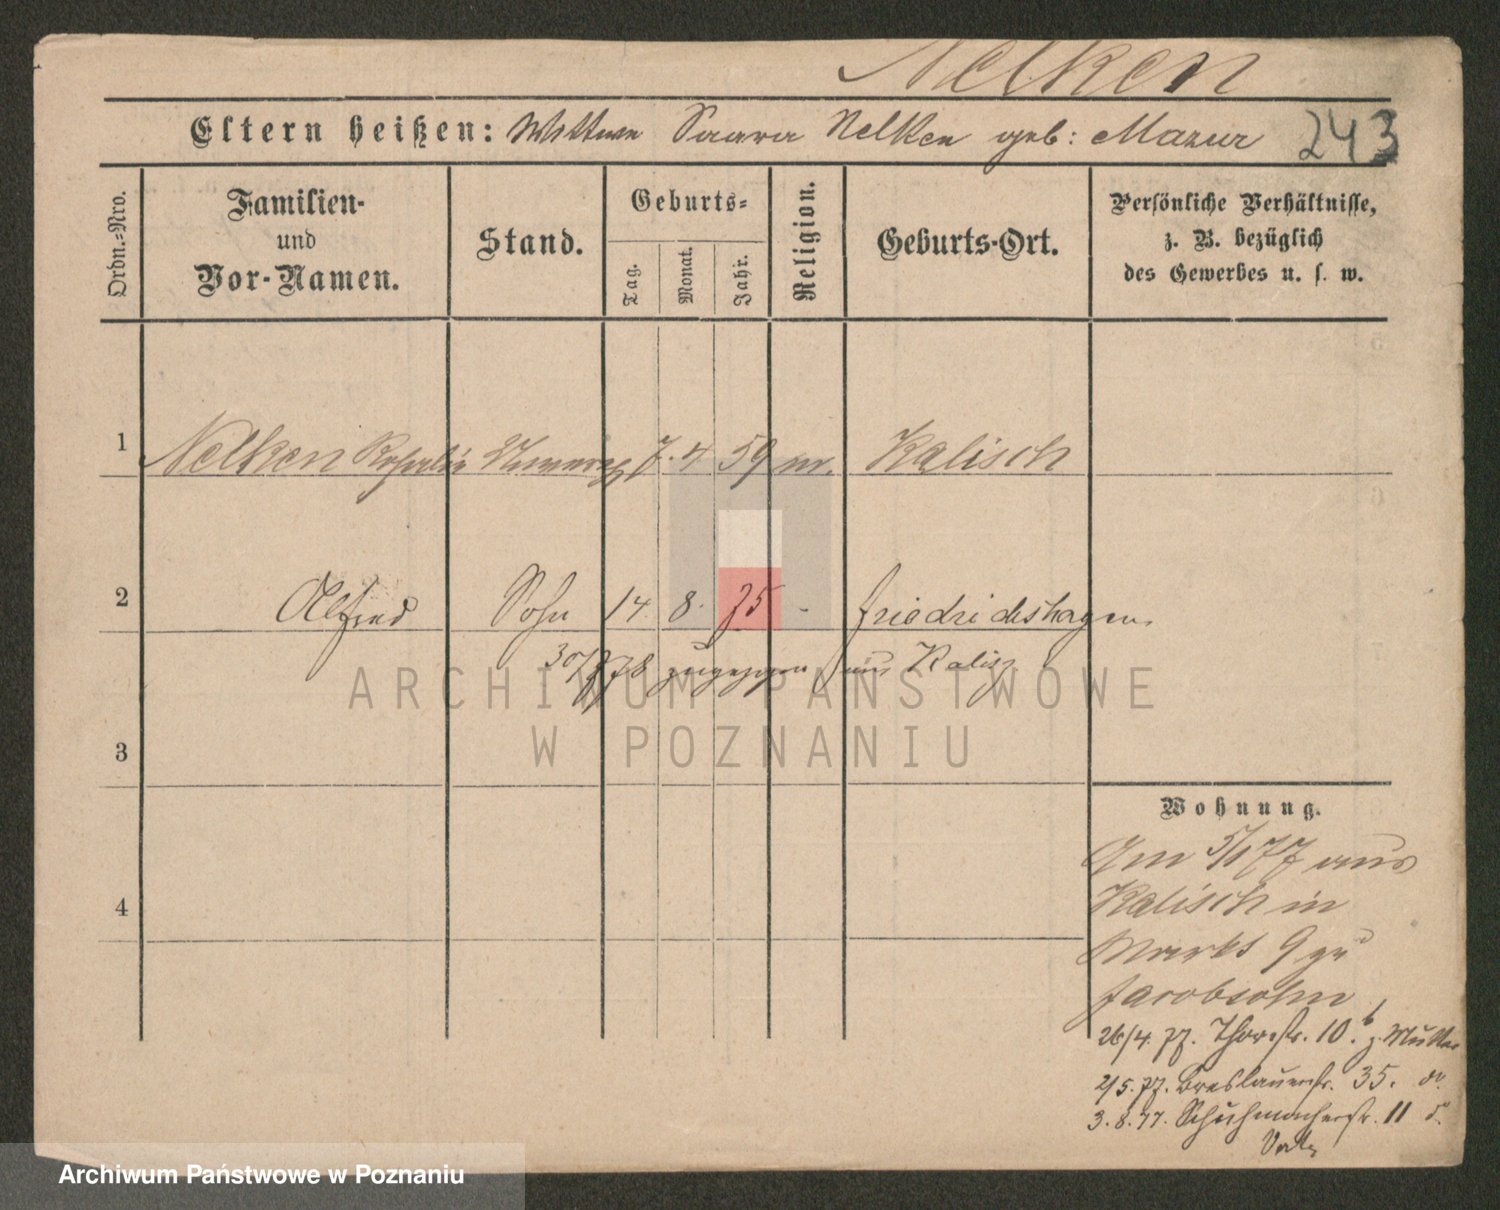 Nelken
Eltern heißen: Wittwe Saara Nelken geb: Mazur 243
Ordn.-Nro.
Familien-
und
Vor-Namen.
Stand.
Geburts-
Tag.
Monat.
Jahr.
Religion.
Geburts-Ort.
Persönliche Verhältnisse,
z. B. bezüglich
des Gewerbes u. s. w.
1 Nelken Rosalie 7. 4 59 m. Kalisch
2 Alfred Sohn 14 8. 75 - Friedrichshagen.
78 zugezogen aus Kalisz
3
4
Wohnung.
Am 5/1 77 aus
Kalisch in
Markt 9 zu
Jacobsohn
26/4. 77. Thorstr. 10.b z. Mutter
2/5. 77. Breslauerstr. 35. do
3. 8. 77. Schuhmacherstr. 11 do.
ARCHIWUM PAŃSTWOWE
W POZNANIU
Archiwum Państwowe w Poznaniu